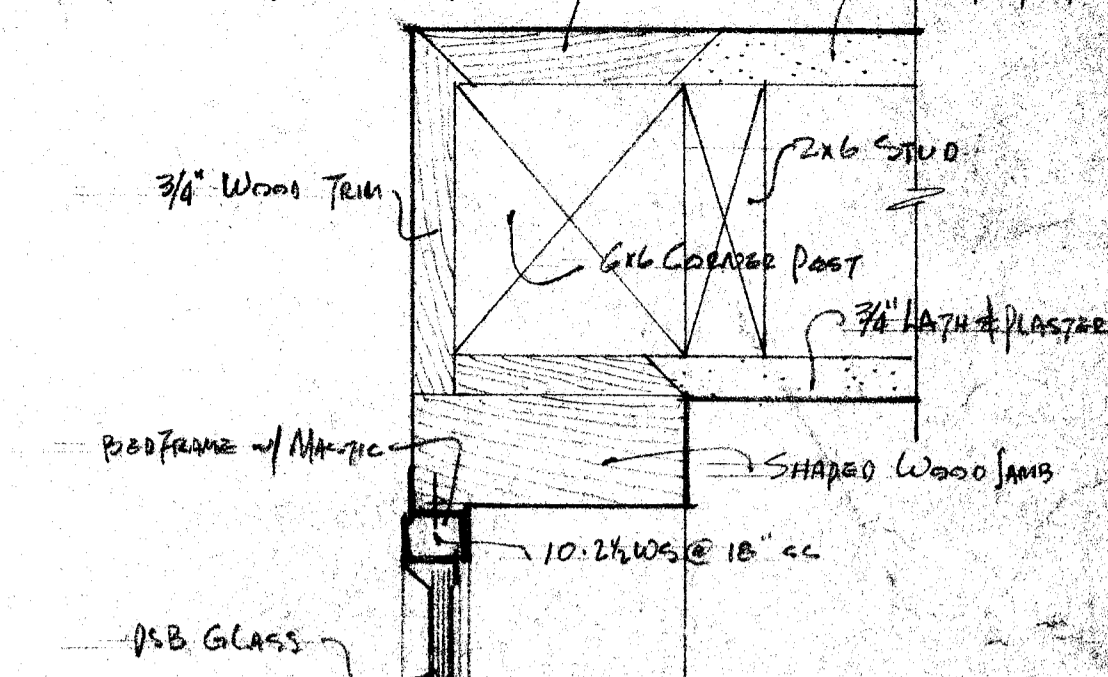 2x6 STUD
3/4" WOOD TRIM
6x6 CORNER POST
3/4" LATH & PLASTER
BED FRAME w/ MASTIC
SHAPED WOOD JAMB
10·2½ WS @ 18" cc
DSB GLASS